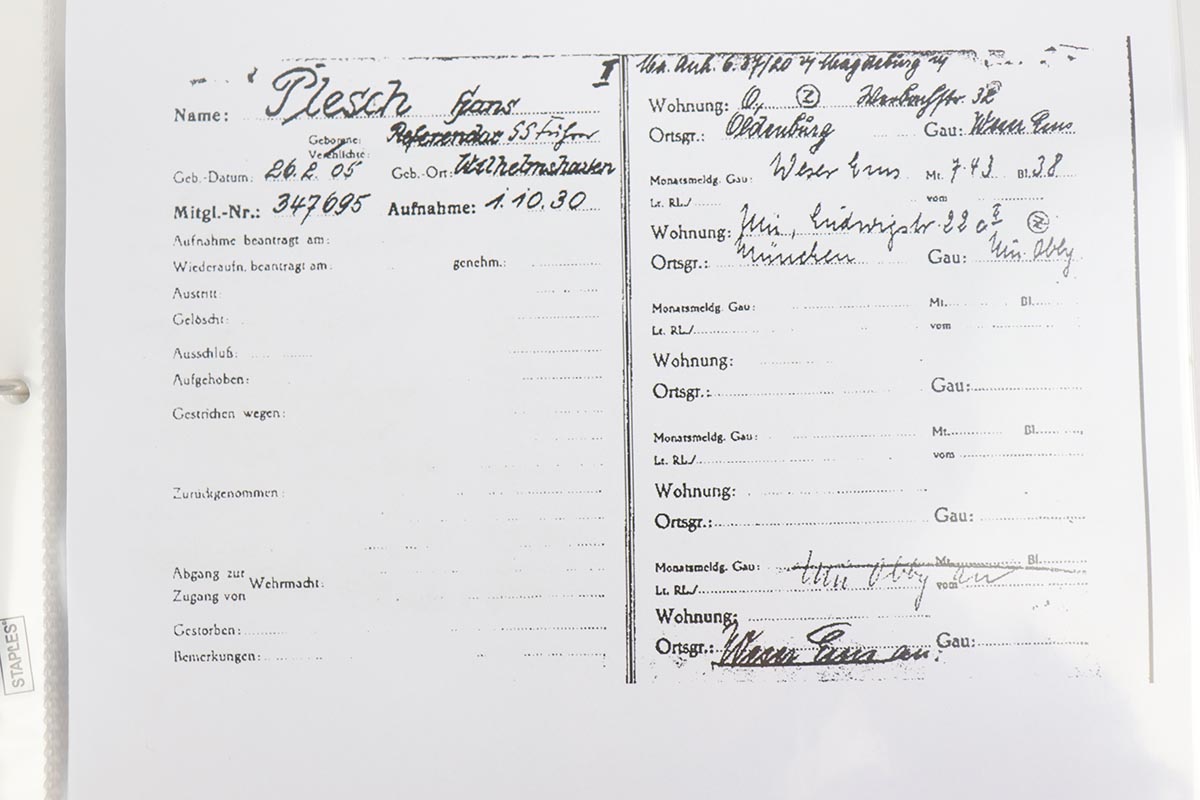 I
Name: Plesch Hans
Geborene: Referendar SS Führer
Verehlichte:
Geb.-Datum: 26.2.05 Geb.-Ort: Wilhelmshaven
Mitgl.-Nr.: 347695 Aufnahme: 1.10.30
Aufnahme beantragt am:
Wiederaufn. beantragt am: genehm.:
Austritt:
Gelöscht:
Ausschluß:
Aufgehoben:
Gestrichen wegen:
Zurückgenommen:
Abgang zur Wehrmacht:
Zugang von
Gestorben:
Bemerkungen:
6.37/20 Magdeburg
Wohnung: O, Z 32
Ortsgr.: Oldenburg Gau: Weser Ems
Monatsmeldg. Gau: Weser Ems Mt. 7.43 Bl. 38
Lt. RL./ vom
Wohnung: Mü, Ludwigstr. 22 a II Z
Ortsgr.: München Gau: Mü Obby
Monatsmeldg. Gau: Mt. Bl.
Lt. RL./ vom
Wohnung:
Ortsgr.: Gau:
Monatsmeldg. Gau: Mt. Bl.
Lt. RL./ vom
Wohnung:
Ortsgr.: Gau:
Monatsmeldg. Gau: Mt. Bl.
Lt. RL./ Mü Obby an vom
Wohnung:
Ortsgr.: Weser Ems an. Gau:
STAPLES